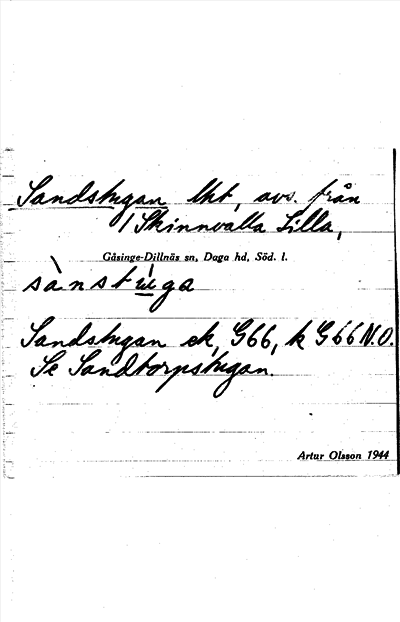 Sandstugan lht, avs. från
1 Skinnvalla Lilla,
Gåsinge-Dillnäs sn, Daga hd, Söd. l.
sànstùga
Sandstugan ek, G66, k G66 N.O.
Se Sandtorpstugan.
Artur Olsson 1944